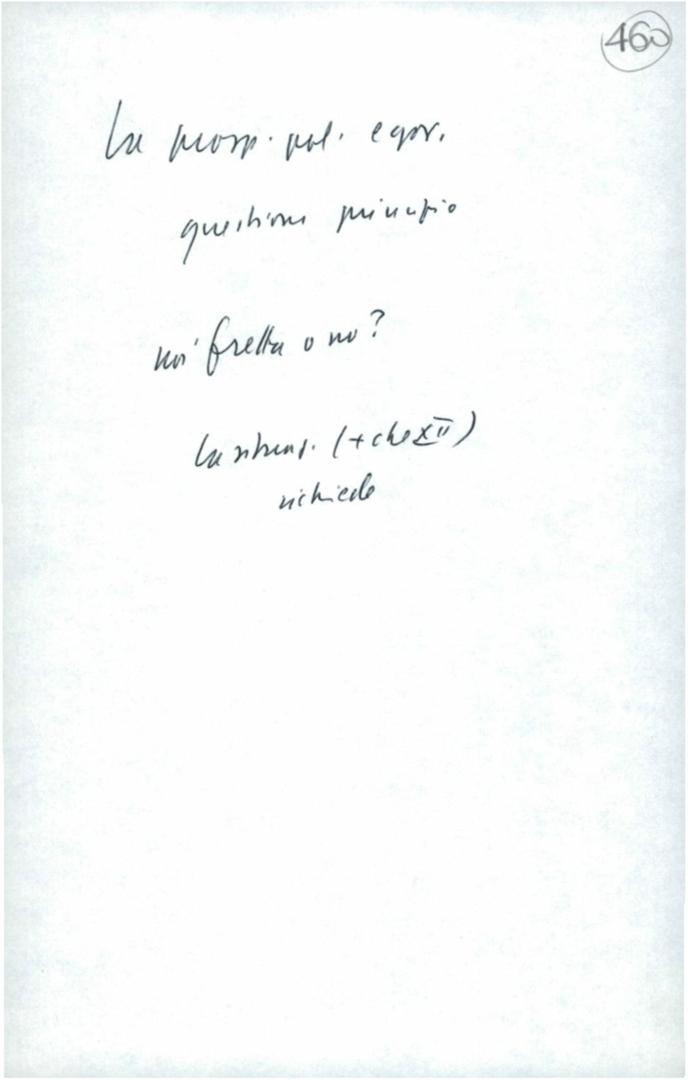 460
La prosp. pol. e gov.
questione principio
noi fretta o no?
La situaz. (+ che XII)
richiede